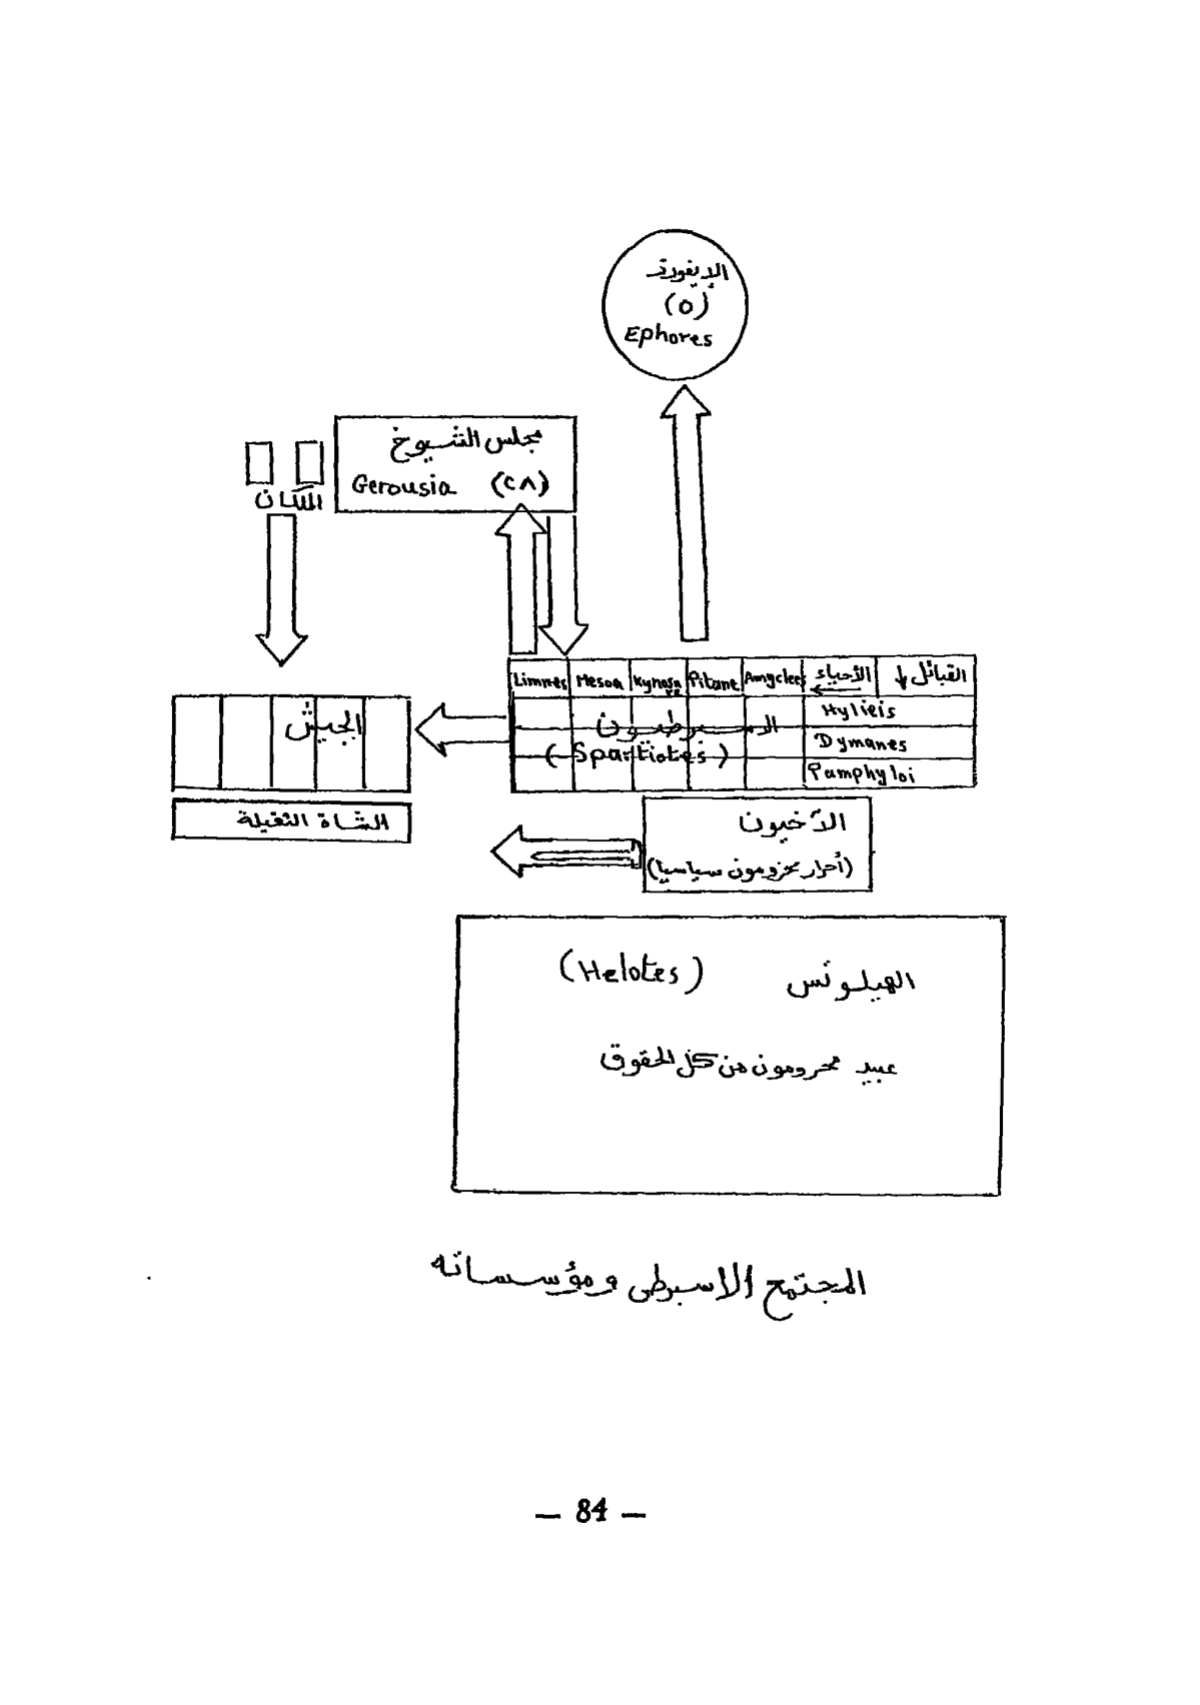 الإيفورة
(٥)
Ephores
مجلس الشيوخ
Gerousia (٢٨)
الملكان
القبائل الأحياء Amyclees Pitane Kynosure Mesoa Limnes
Hylieis
Dymanes
Pamphyloi
الاسبرطيون
(Spartiotes)
الجيش
المشاة الثقيلة
الآخيون
(أحرار محرومون سياسيا)
الهيلوتس (Helotes)
عبيد محرومون من كل الحقوق
المجتمع الاسبرطي ومؤسساته
— 84 —